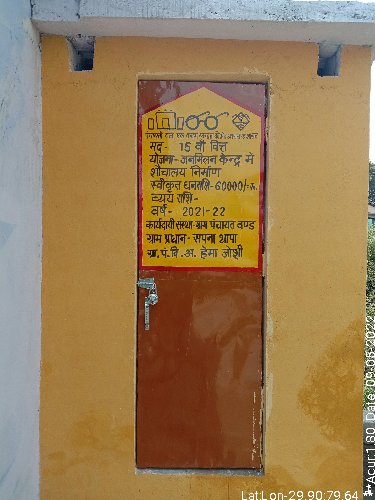 मद- 15 वाँ वित्त
योजना-जनमिलन केन्द्र मे
शौचालय निर्माण
स्वीकृत धनराशि-60000/-रू.
व्यय राशि-
वर्ष- 2021-22
कार्यदायी संस्था-ग्राम पंचायत वण्ड
ग्राम प्रधान- सपना थापा
ग्रा.पं.वि.अ. हेमा जोशी
LatLon-29.90:79.64
**Acur:1.80 Date:09-06-2022